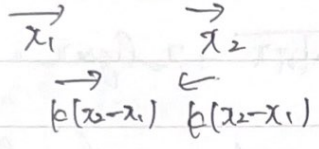 → →
x₁ x₂
→ ←
k(x₂-x₁) k(x₂-x₁)